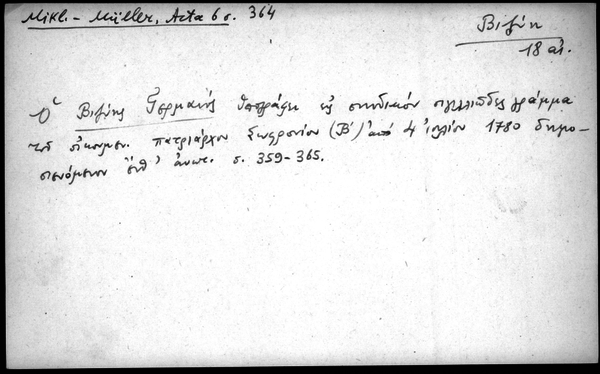 Mikl. - Müller, Acta 6 σ. 364
Βιζύη
18 αἰ.
Ὁ Βιζύης Γερμανὸς ὑπογράφει εἰς συνοδικὸν σιγιλλιῶδες γράμμα
τοῦ οἰκουμεν. πατριάρχου Σωφρονίου (Β΄) ἀπὸ 4 ἰουλίου 1780 δημο-
σιευόμενον ἔνθ' ἀνωτ. σ. 359-365.